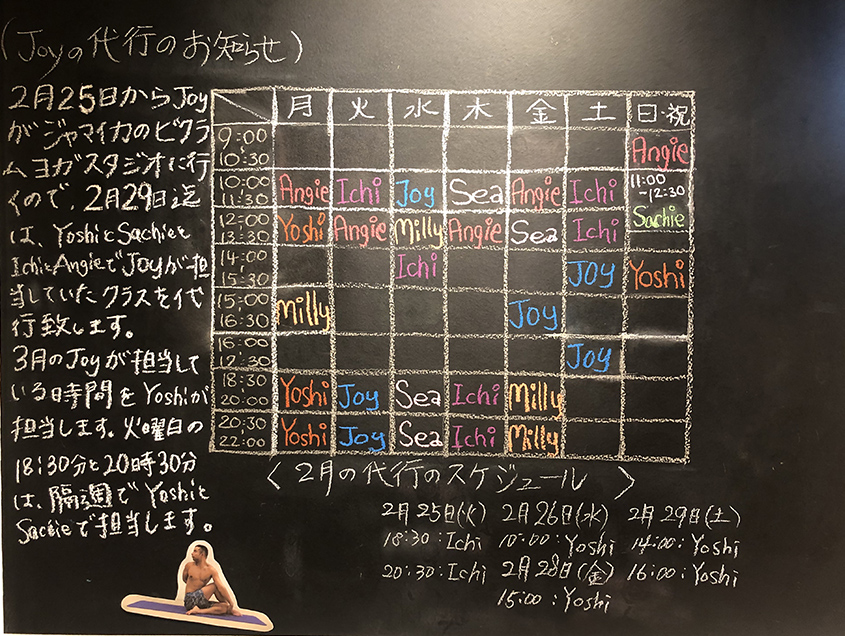 (Joyの代行のお知らせ)
2月25日からJoy
がジャマイカのビクラ
ムヨガスタジオに行
くので、2月29日迄
は、YoshiとSachieと
IchiとAngieでJoyが担
当していたクラスを代
行致します。
3月のJoyが担当して
いる時間をYoshiが
担当します。火曜日の
18:30分と20時30分
は、隔週でYoshiと
Sachieで担当します。
月 火 水 木 金 土 日・祝
9:00 10:30 Angie
10:00 11:30 Angie Ichi Joy Sea Angie Ichi 11:00-12:30
12:00 13:30 Yoshi Angie Milly Angie Sea Ichi Sachie
14:00 15:30 Ichi Joy Yoshi
15:00 16:30 Milly Joy
16:00 12:30 Joy
18:30 20:00 Yoshi Joy Sea Ichi Milly
20:30 22:00 Yoshi Joy Sea Ichi Milly
〈2月の代行のスケジュール 〉
2月25日(火) 2月26日(水) 2月29日(土)
18:30:Ichi 10:00:Yoshi 14:00:Yoshi
20:30:Ichi 2月28日(金) 16:00:Yoshi
15:00:Yoshi